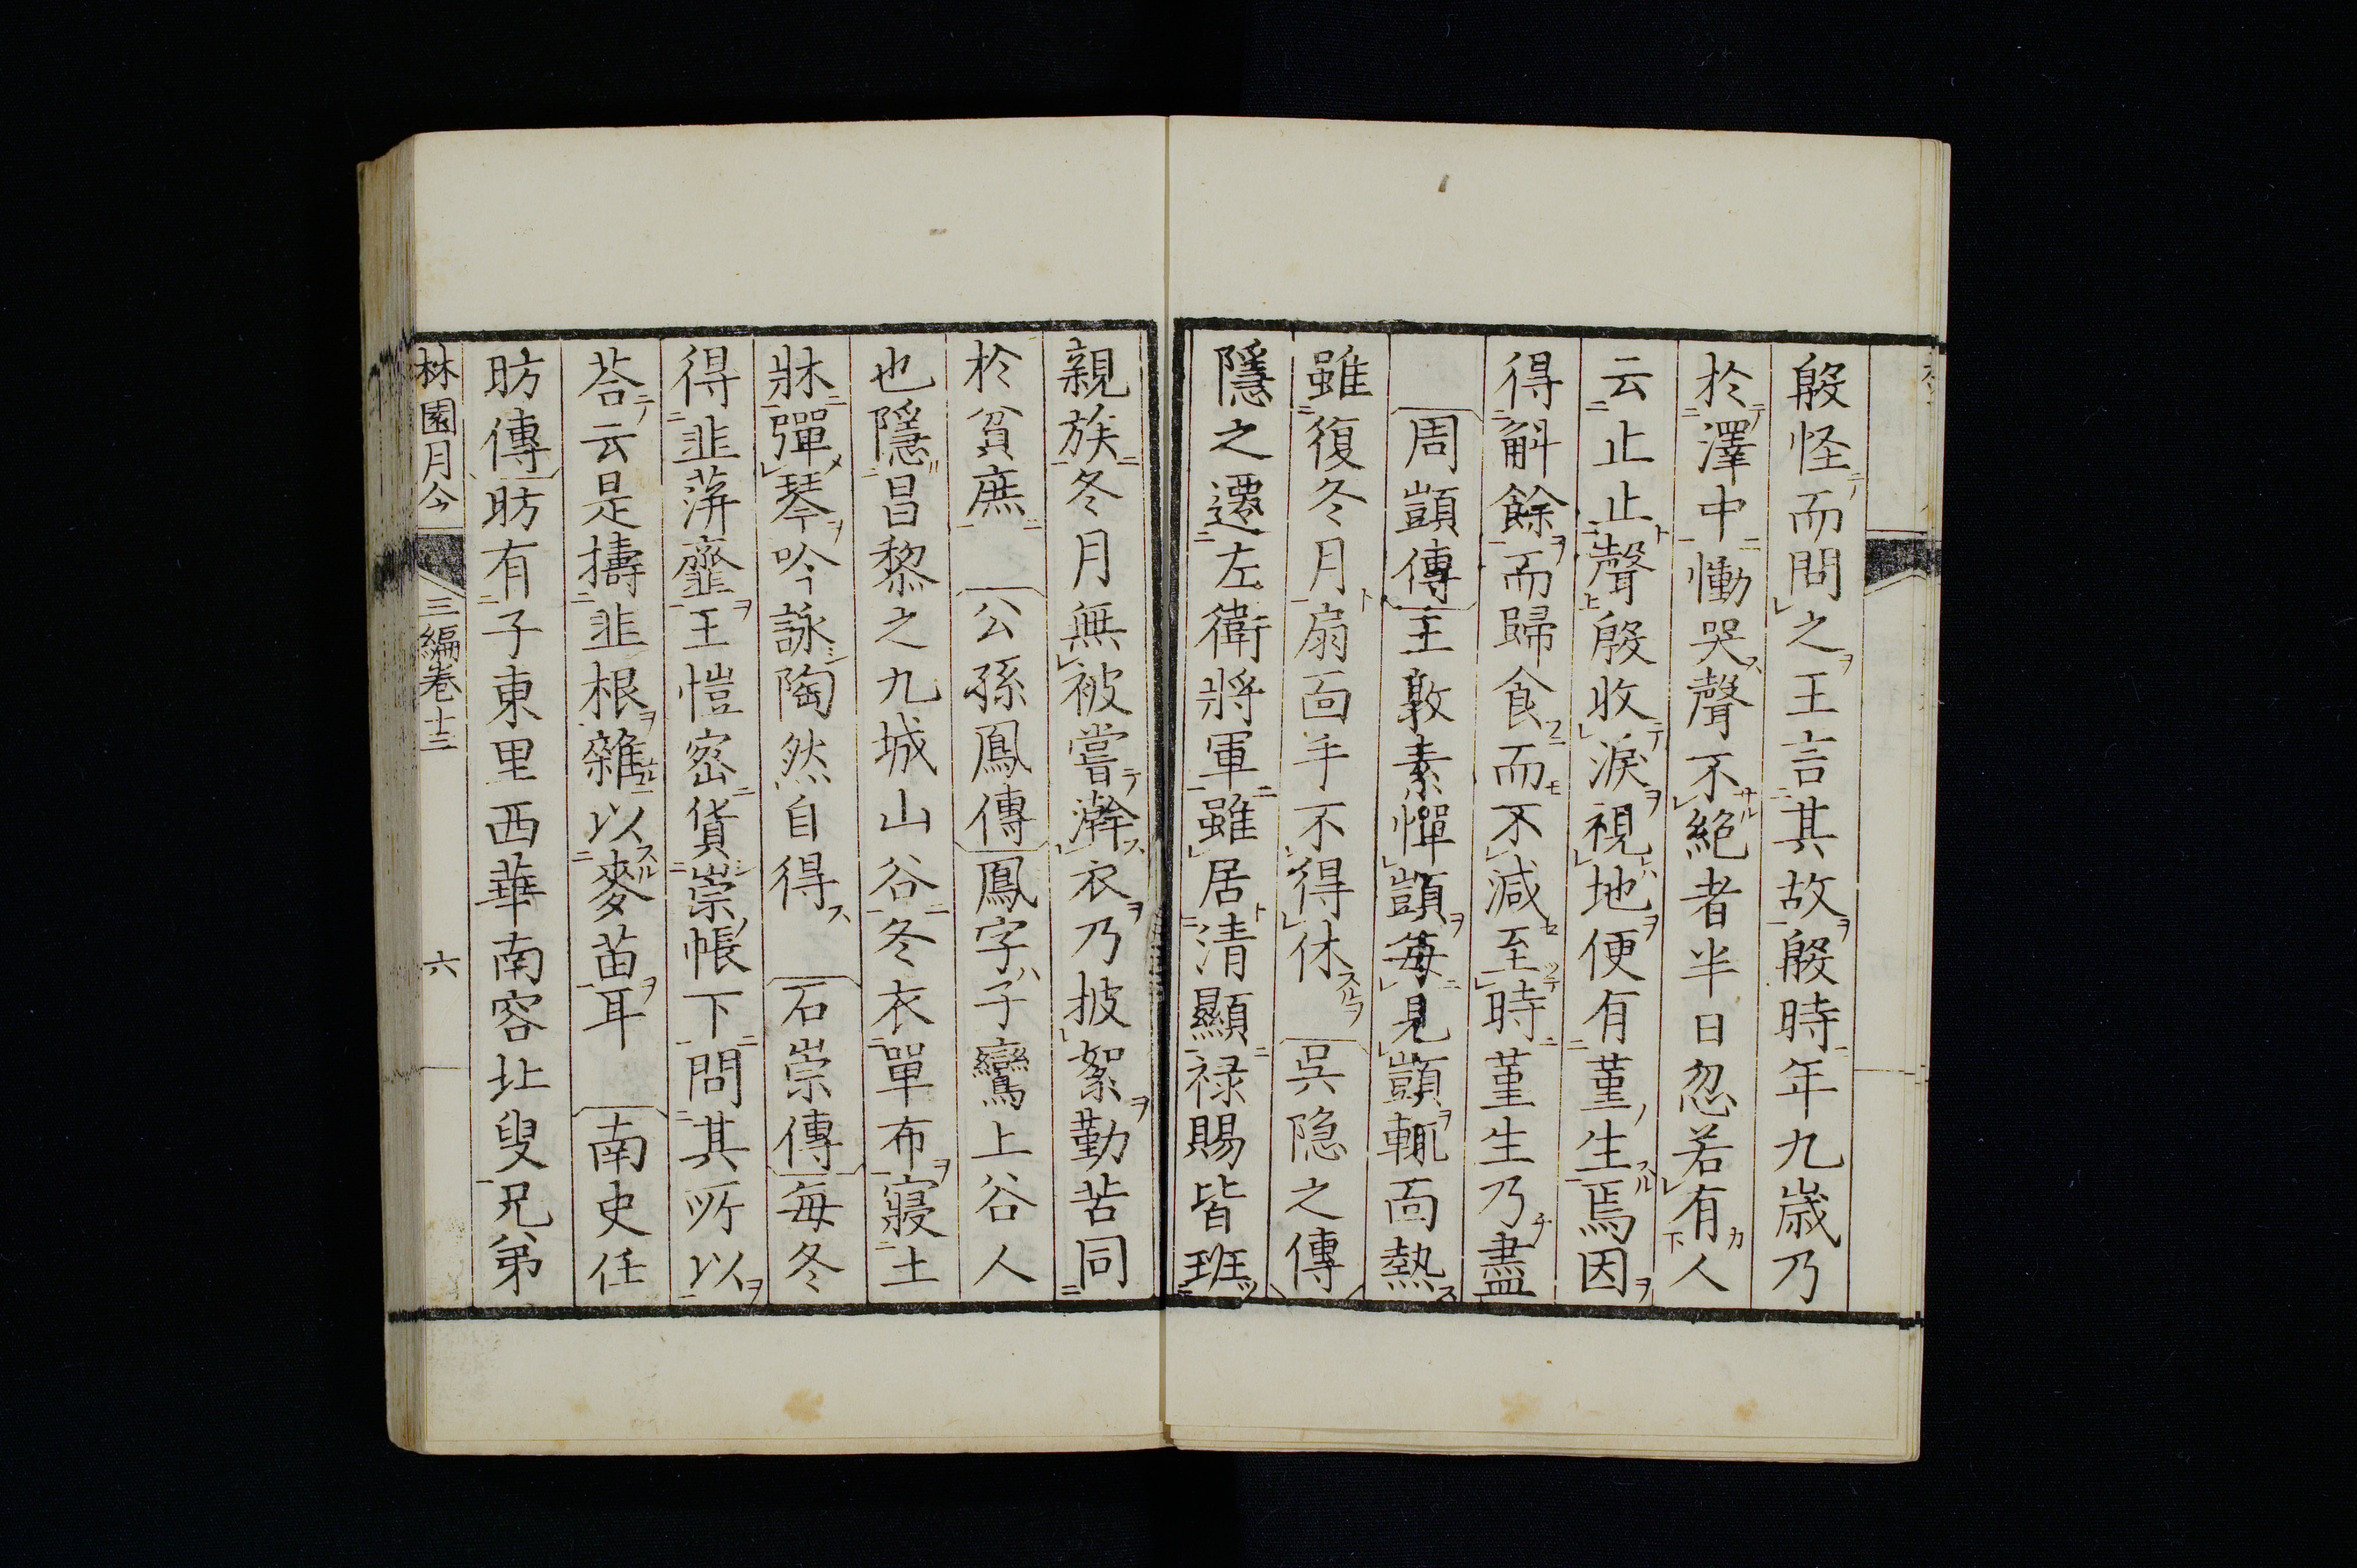 殷怪而問之王言其故殷時年九歲乃
於澤中慟哭聲不絕者半日忽若有人
云止止聲殷收淚視地便有菫生焉因
得斛餘而歸食而不減至時菫生乃盡
周顗傳王敦素憚顗每見顗輒面熱
雖復冬月扇面手不得休 吳隐之傳
隱之遷左衛將軍雖居清顯禄賜皆班
親族冬月無被嘗澣衣乃披絮勤苦同
於貧庶 公孫鳳傳鳳字子鸞上谷人
也隱昌黎之九城山谷冬衣單布寢土
牀彈琴吟詠陶然自得 石崇傳每冬
得韭蓱虀王愷密貨崇帳下問其所以
荅云是擣韭根雜以麥苗耳 南史任
昉傳昉有子東里西華南容北叟兄弟
林園月令 三編卷十三 六